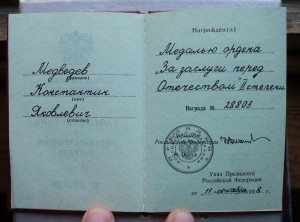 Медведев
(фамилия)
Константин
(имя)
Яковлевич
(отчество)
Награжден(а)
Медалью ордена
„За заслуги перед
Отечеством" II степени
Награда № 28803
Российской Федерации
Указ Президента
Российской Федерации
от 11 сентября 199 г.